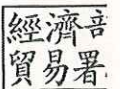 經濟
貿易署